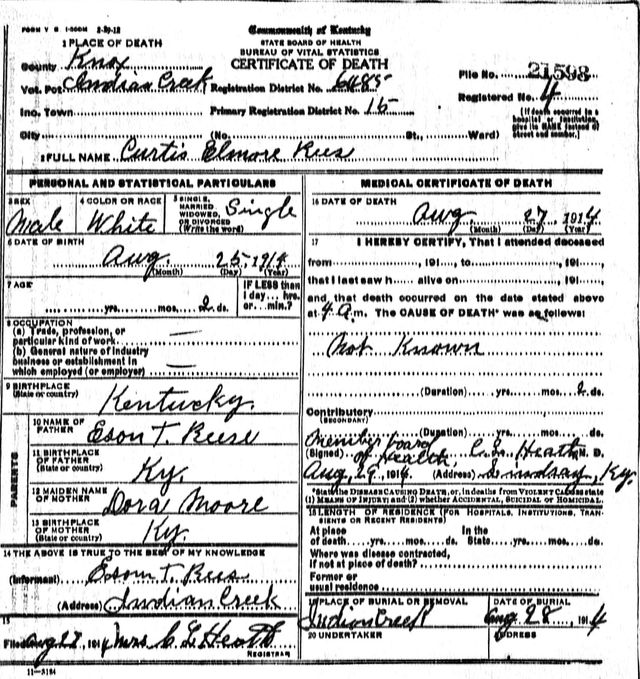 FORM V S 1-500M 2-20-12
Commonwealth of Kentucky
STATE BOARD OF HEALTH
BUREAU OF VITAL STATISTICS
CERTIFICATE OF DEATH
1 PLACE OF DEATH
County Knox
Vot. Pct. Indian Creek Registration District No. 6485
File No. 21598
Inc. Town Primary Registration District No. 15
Registered No. 4
City (No. St., Ward)
(If death occurred in a hospital or institution, give its NAME instead of street and number.)
2 FULL NAME Curtis Elmore Rees
PERSONAL AND STATISTICAL PARTICULARS
3 SEX Male
4 COLOR OR RACE White
5 SINGLE, MARRIED, WIDOWED, OR DIVORCED (Write the word) Single
6 DATE OF BIRTH
Aug. 25, 1914
(Month) (Day) (Year)
7 AGE
yrs. mos. 2 ds.
IF LESS than 1 day... hrs. or... min.?
8 OCCUPATION
(a) Trade, profession, or particular kind of work
(b) General nature of industry business or establishment in which employed (or employer)
9 BIRTHPLACE
(State or country) Kentucky.
PARENTS
10 NAME OF FATHER Esom T. Reese
11 BIRTHPLACE OF FATHER (State or country) Ky.
12 MAIDEN NAME OF MOTHER Dora Moore
13 BIRTHPLACE OF MOTHER (State or country) Ky.
14 THE ABOVE IS TRUE TO THE BEST OF MY KNOWLEDGE
(Informant) Esom T. Rees
(Address) Indian Creek
15
Filed Aug 27, 1914 Mrs C L Heath
REGISTRAR
11—3184
MEDICAL CERTIFICATE OF DEATH
16 DATE OF DEATH
Aug 27, 1914
(Month) (Day) (Year)
17 I HEREBY CERTIFY, That I attended deceased
from, 191, to, 191,
that I last saw h alive on, 191,
and that death occurred on the date stated above
at 4 a m. The CAUSE OF DEATH* was as follows:
Not Known
(Duration) yrs. mos. 2 ds.
Contributory
(SECONDARY)
(Duration) yrs. mos. ds.
member board
(Signed) of Health, C. L. Heath M. D.
Aug, 29, 1914 (Address) Lindsay, Ky.
*State the DISEASE CAUSING DEATH, or, in deaths from VIOLENT CAUSES state
(1) MEANS OF INJURY; and (2) whether ACCIDENTAL, SUICIDAL OR HOMICIDAL.
18 LENGTH OF RESIDENCE (FOR HOSPITALS, INSTITUTIONS, TRANSIENTS OR RECENT RESIDENTS)
At place of death yrs. mos. ds. In the State yrs. mos. ds.
Where was disease contracted,
if not at place of death?
Former or
usual residence
19 PLACE OF BURIAL OR REMOVAL
Indian Creek
DATE OF BURIAL
Aug 28, 1914
20 UNDERTAKER
ADDRESS